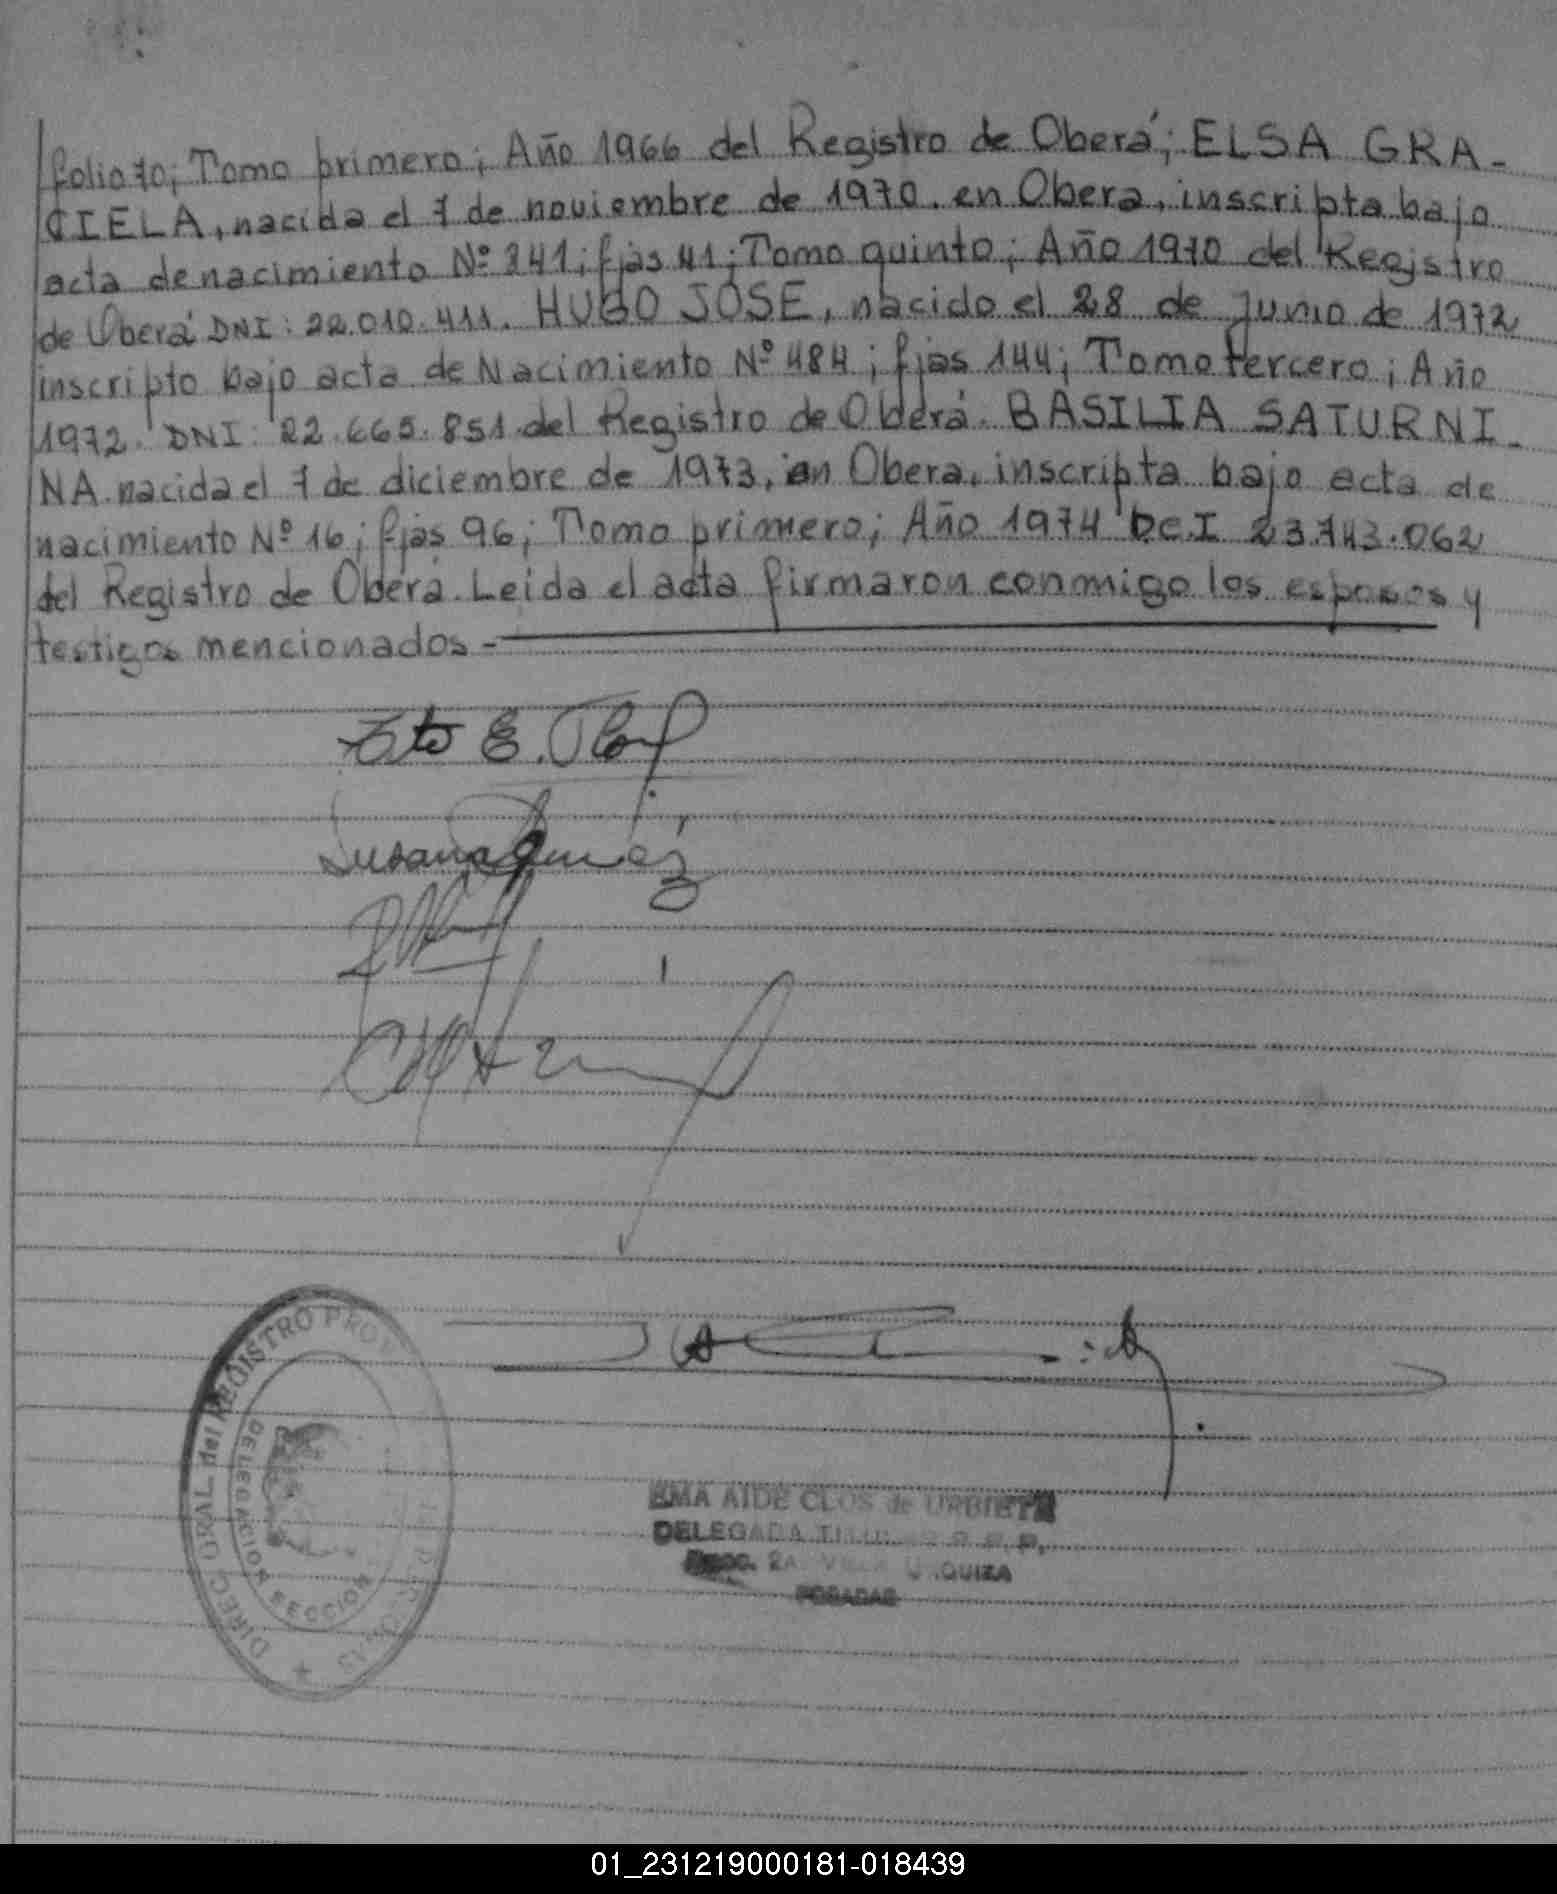 folio 70; Tomo primero; Año 1966 del Registro de Oberá; ELSA GRA-
CIELA, nacida el 7 de noviembre de 1970. en Obera, inscripta bajo
acta de nacimiento Nº 341; fjas 41; Tomo quinto; Año 1970 del Registro
de Oberá DNI: 22.010.411. HUGO JOSE, nacido el 28 de Junio de 1972
inscripto bajo acta de Nacimiento Nº 484; fjas 144; Tomo tercero; Año
1972. DNI. 22.665.851 del Registro de Oberá. BASILIA SATURNI-
NA. nacida el 7 de diciembre de 1973, en Obera, inscripta bajo acta de
nacimiento Nº 16; fjas 96; Tomo primero; Año 1974 D.C.I 23.743.062
del Registro de Oberá. Leida el acta firmaron conmigo los esposos y
testigos mencionados -
Susana
DIREC GRAL del REGISTRO PROV
DELEGACION SECCION
EMA AIDE CLOS de URBIETA
DELEGADA
2A. VILLA URQUIZA
POSADAS
01_231219000181-018439